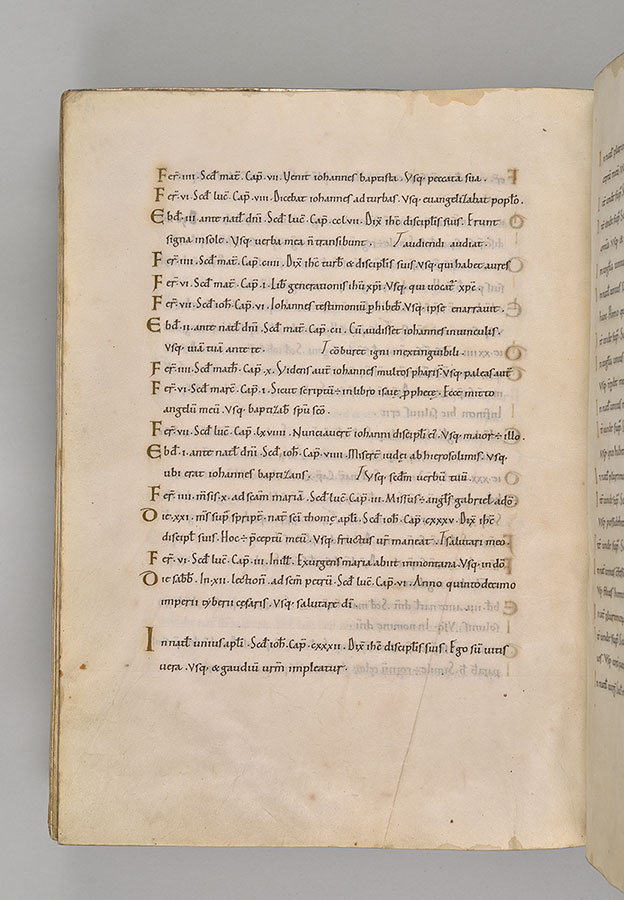 Fer̄ · IIII · Scd̄ mat̄ · Cap̄ · VII · Venit iohannes baptista · Vsq̄ · peccata sua ·
Fer̄ · VI · Scd̄ luc̄ · Cap̄ · VIII · Dicebat iohannes ad turbas · Vsq̄ · euangelizabat popl̄o ·
Ebd̄ · III · ante natl̄ dn̄i · Scd̄ luc̄ · Cap̄ · CCLVII · Dix̄ ih̄c discipl̄is suis · Erunt
signa in sole · Vsq̄ · uerba mea n̄ transibunt · audiendi audiat ·
Fer̄ · IIII · Scd̄ mat̄ · Cap̄ · CIIII · Dix̄ ih̄c turb̄ & discipl̄is suis · Vsq̄ · qui habet aures
Fer̄ · VI · Scd̄ mat̄ · Cap̄ · I · Lib̄ generationis ih̄u xp̄i · Vsq̄ · qui uocat̄ xp̄c ·
Fer̄ · VII · Scd̄ ioh̄ · Cap̄ · VI · Iohannes testimoniū phibet̄ · Vsq̄ · ipse enarrauit ·
Ebd̄ · II · ante natl̄ dn̄i · Scd̄ mat̄ · Cap̄ · CII · Cū audisset iohannes inuinculis ·
Vsq̄ · uiā tuā ante te · cōburet igni inextinguibili ·
Fer̄ · IIII · Scd̄ math̄ · Cap̄ · X · Videns aut̄ iohannes multos pharis̄ · Vsq̄ · paleas aut̄
Fer̄ · VI · Scd̄ marc̄ · Cap̄ · I · Sicut scriptū ÷ in libro isaie pphete · Ecce mitto
angelū meū · Vsq̄ · baptizab̄ sp̄u sc̄o ·
Fer̄ · VII · Scd̄ luc̄ · Cap̄ · LXVIII · Nunciauer̄t iohanni discipl̄i ei · Vsq̄ · maior ÷ illo ·
Ebd̄ · I · ante natl̄ dn̄i · Scd̄ ioh̄ · Cap̄ · VIIII · Miser̄t iudei ab hierosolimis · Vsq̄ ·
ubi erat iohannes baptizans · Vsq̄ · scdm̄ uerbū tuū ·
Fer̄ · IIII · m̄sis · X · ad sc̄am mariā · Scd̄ luc̄ · Cap̄ · III · Missus ÷ angl̄s gabriel · a dō ·
Die · XXI · m̄s sup̄ script̄ · nat̄ sc̄i thome apl̄i · Scd̄ ioh̄ · Cap̄ · CXXXV · Dix̄ ih̄c
discipl̄ suis · Hoc ÷ p̄ceptū meū · Vsq̄ · fructus ur̄ maneat · salutari meo ·
Fer̄ · VI · Scd̄ luc̄ · Cap̄ · III · In ill̄ · Exurgens maria abiit inmontana · Vsq̄ · in dō
Die sabb̄ · In · XII · lection̄ · ad sc̄m petrū · Scd̄ luc̄ · Cap̄ · VI · Anno quintodecimo
imperii tyberii cesaris · Vsq̄ · salutare dī ·
In natl̄ unius apl̄i · Scd̄ ioh̄ · Cap̄ · CXXXII · Dix̄ ih̄c discipl̄is suis · Ego sū uitis
uera · Vsq̄ · & gaudiū ur̄m impleatur ·